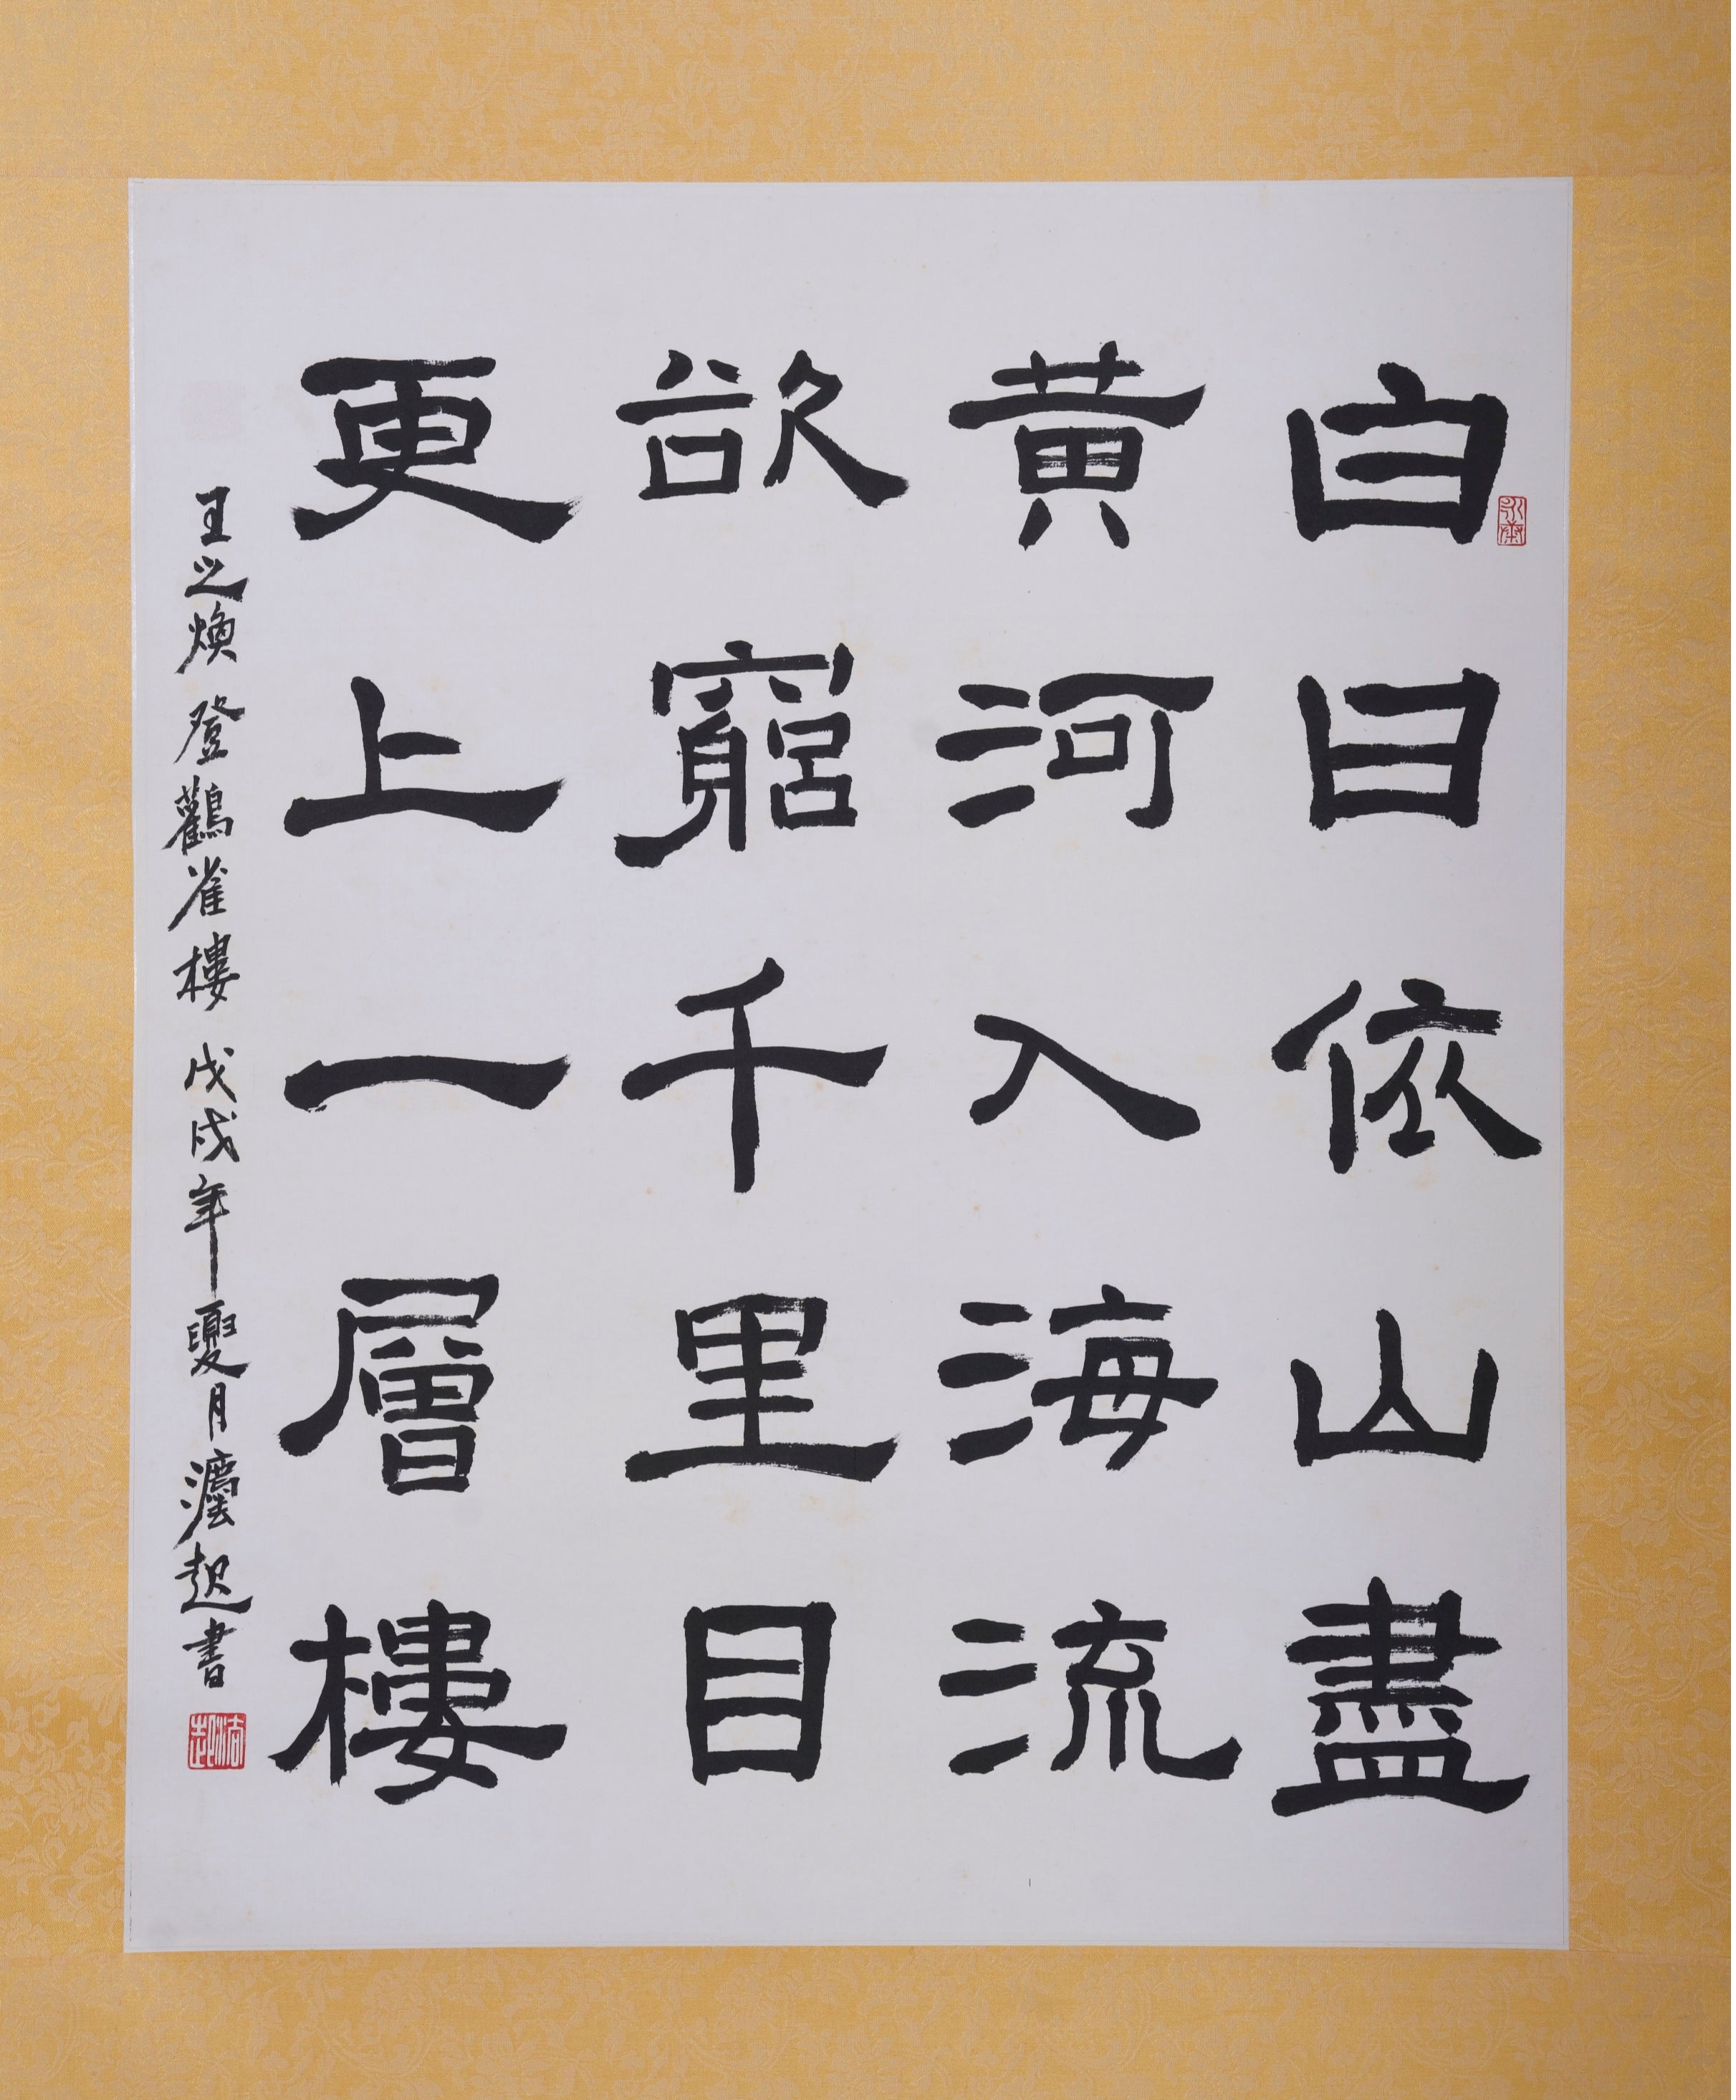 白日依山盡
黃河入海流
欲竆千里目
更上一層樓
王之煥登鸛雀樓 戊戌年夏月灋起書
法起